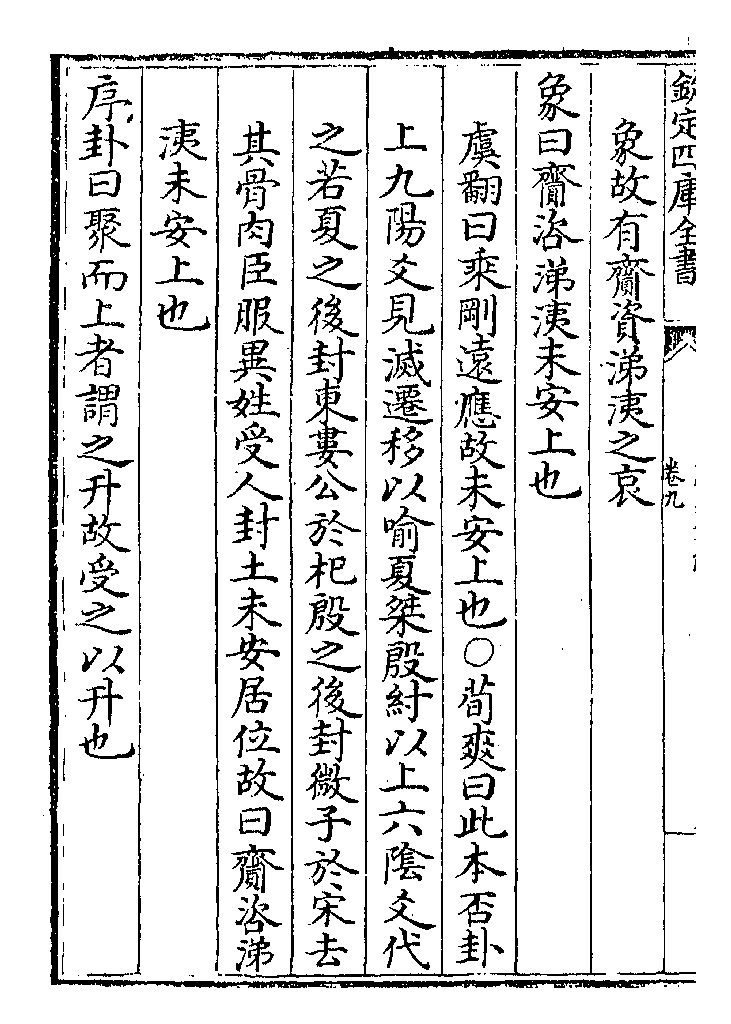 欽定四庫全書
卷九
象故有齎資涕洟之哀
象曰齎咨涕洟未安上也
虞翻曰乘剛遠應故未安上也○荀爽曰此本否卦
上九陽爻見滅遷移以喻夏桀殷紂以上六陰爻代
之若夏之後封東婁公於杞殷之後封微子於宋去
其骨肉臣服異姓受人封土未安居位故曰齎咨涕
洟未安上也
序卦曰聚而上者謂之升故受之以升也